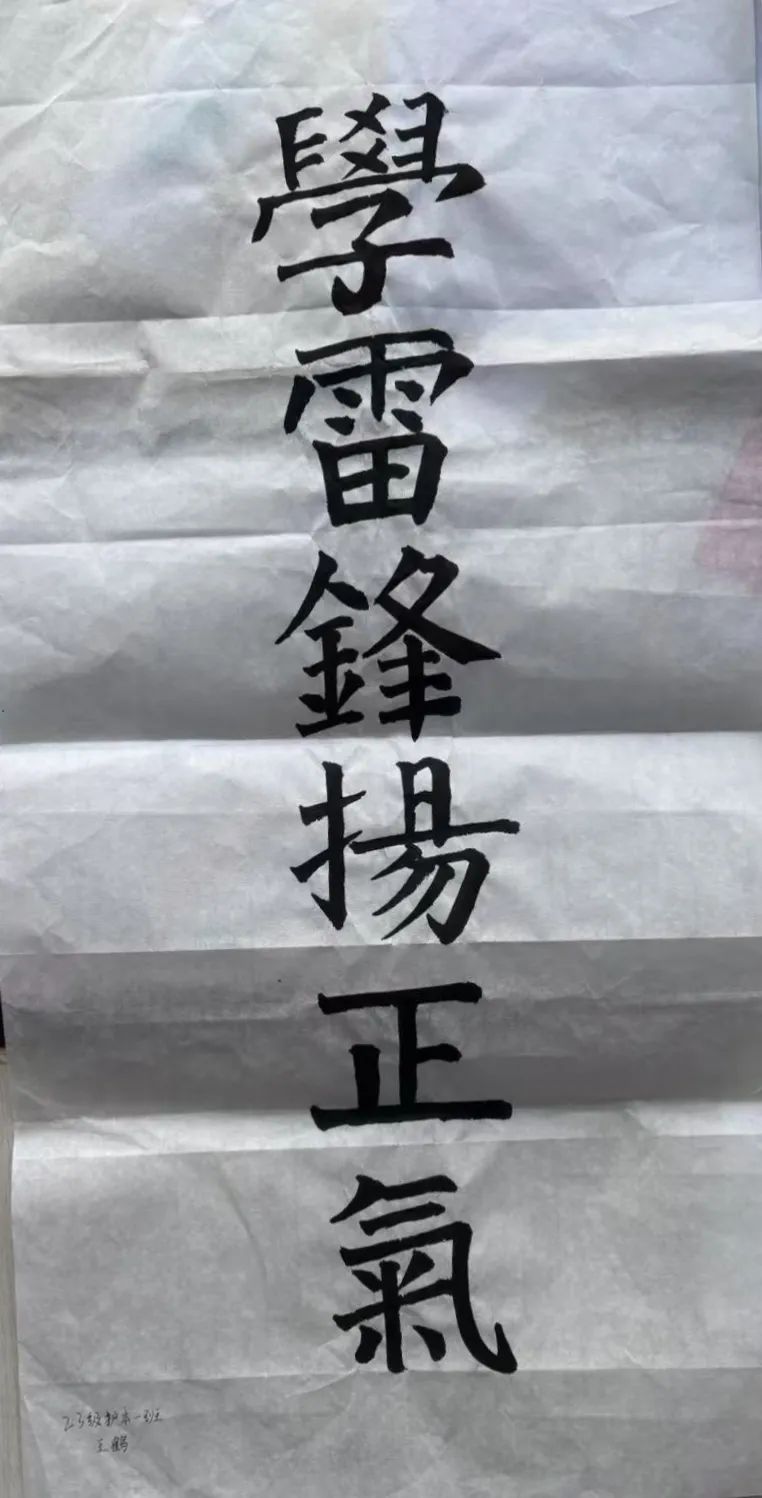 學雷鋒揚正氣
23级护本一班
王鹤